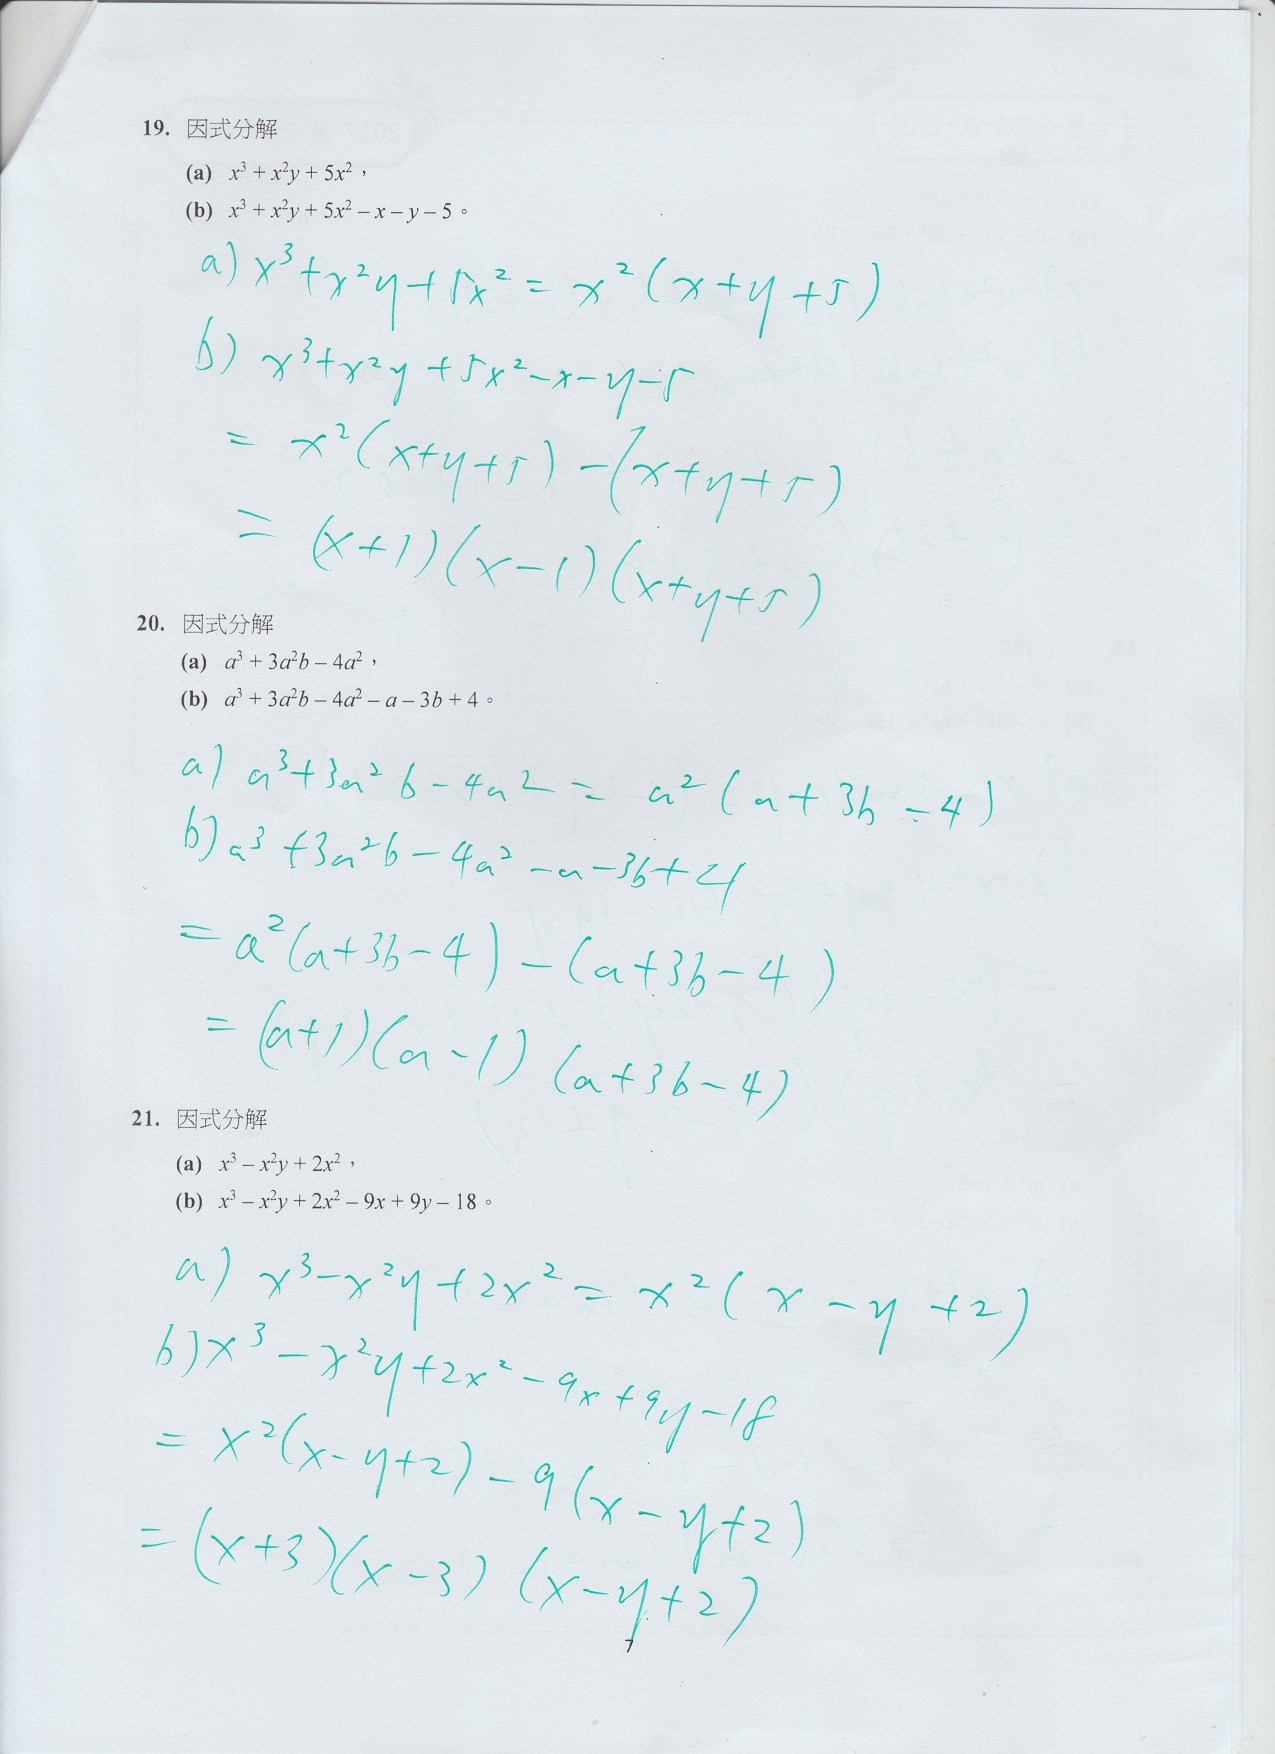 19. 因式分解
(a) x³ + x²y + 5x²，
(b) x³ + x²y + 5x² – x – y – 5。
a) x³+x²y+5x² = x²(x+y+5)
b) x³+x²y+5x²-x-y-5
= x²(x+y+5)-(x+y+5)
= (x+1)(x-1)(x+y+5)
20. 因式分解
(a) a³ + 3a²b – 4a²，
(b) a³ + 3a²b – 4a² – a – 3b + 4。
a) a³+3a²b-4a² = a²(a+3b-4)
b) a³+3a²b-4a²-a-3b+4
= a²(a+3b-4)-(a+3b-4)
= (a+1)(a-1)(a+3b-4)
21. 因式分解
(a) x³ – x²y + 2x²，
(b) x³ – x²y + 2x² – 9x + 9y – 18。
a) x³-x²y+2x² = x²(x-y+2)
b) x³-x²y+2x²-9x+9y-18
= x²(x-y+2)-9(x-y+2)
= (x+3)(x-3)(x-y+2)
7